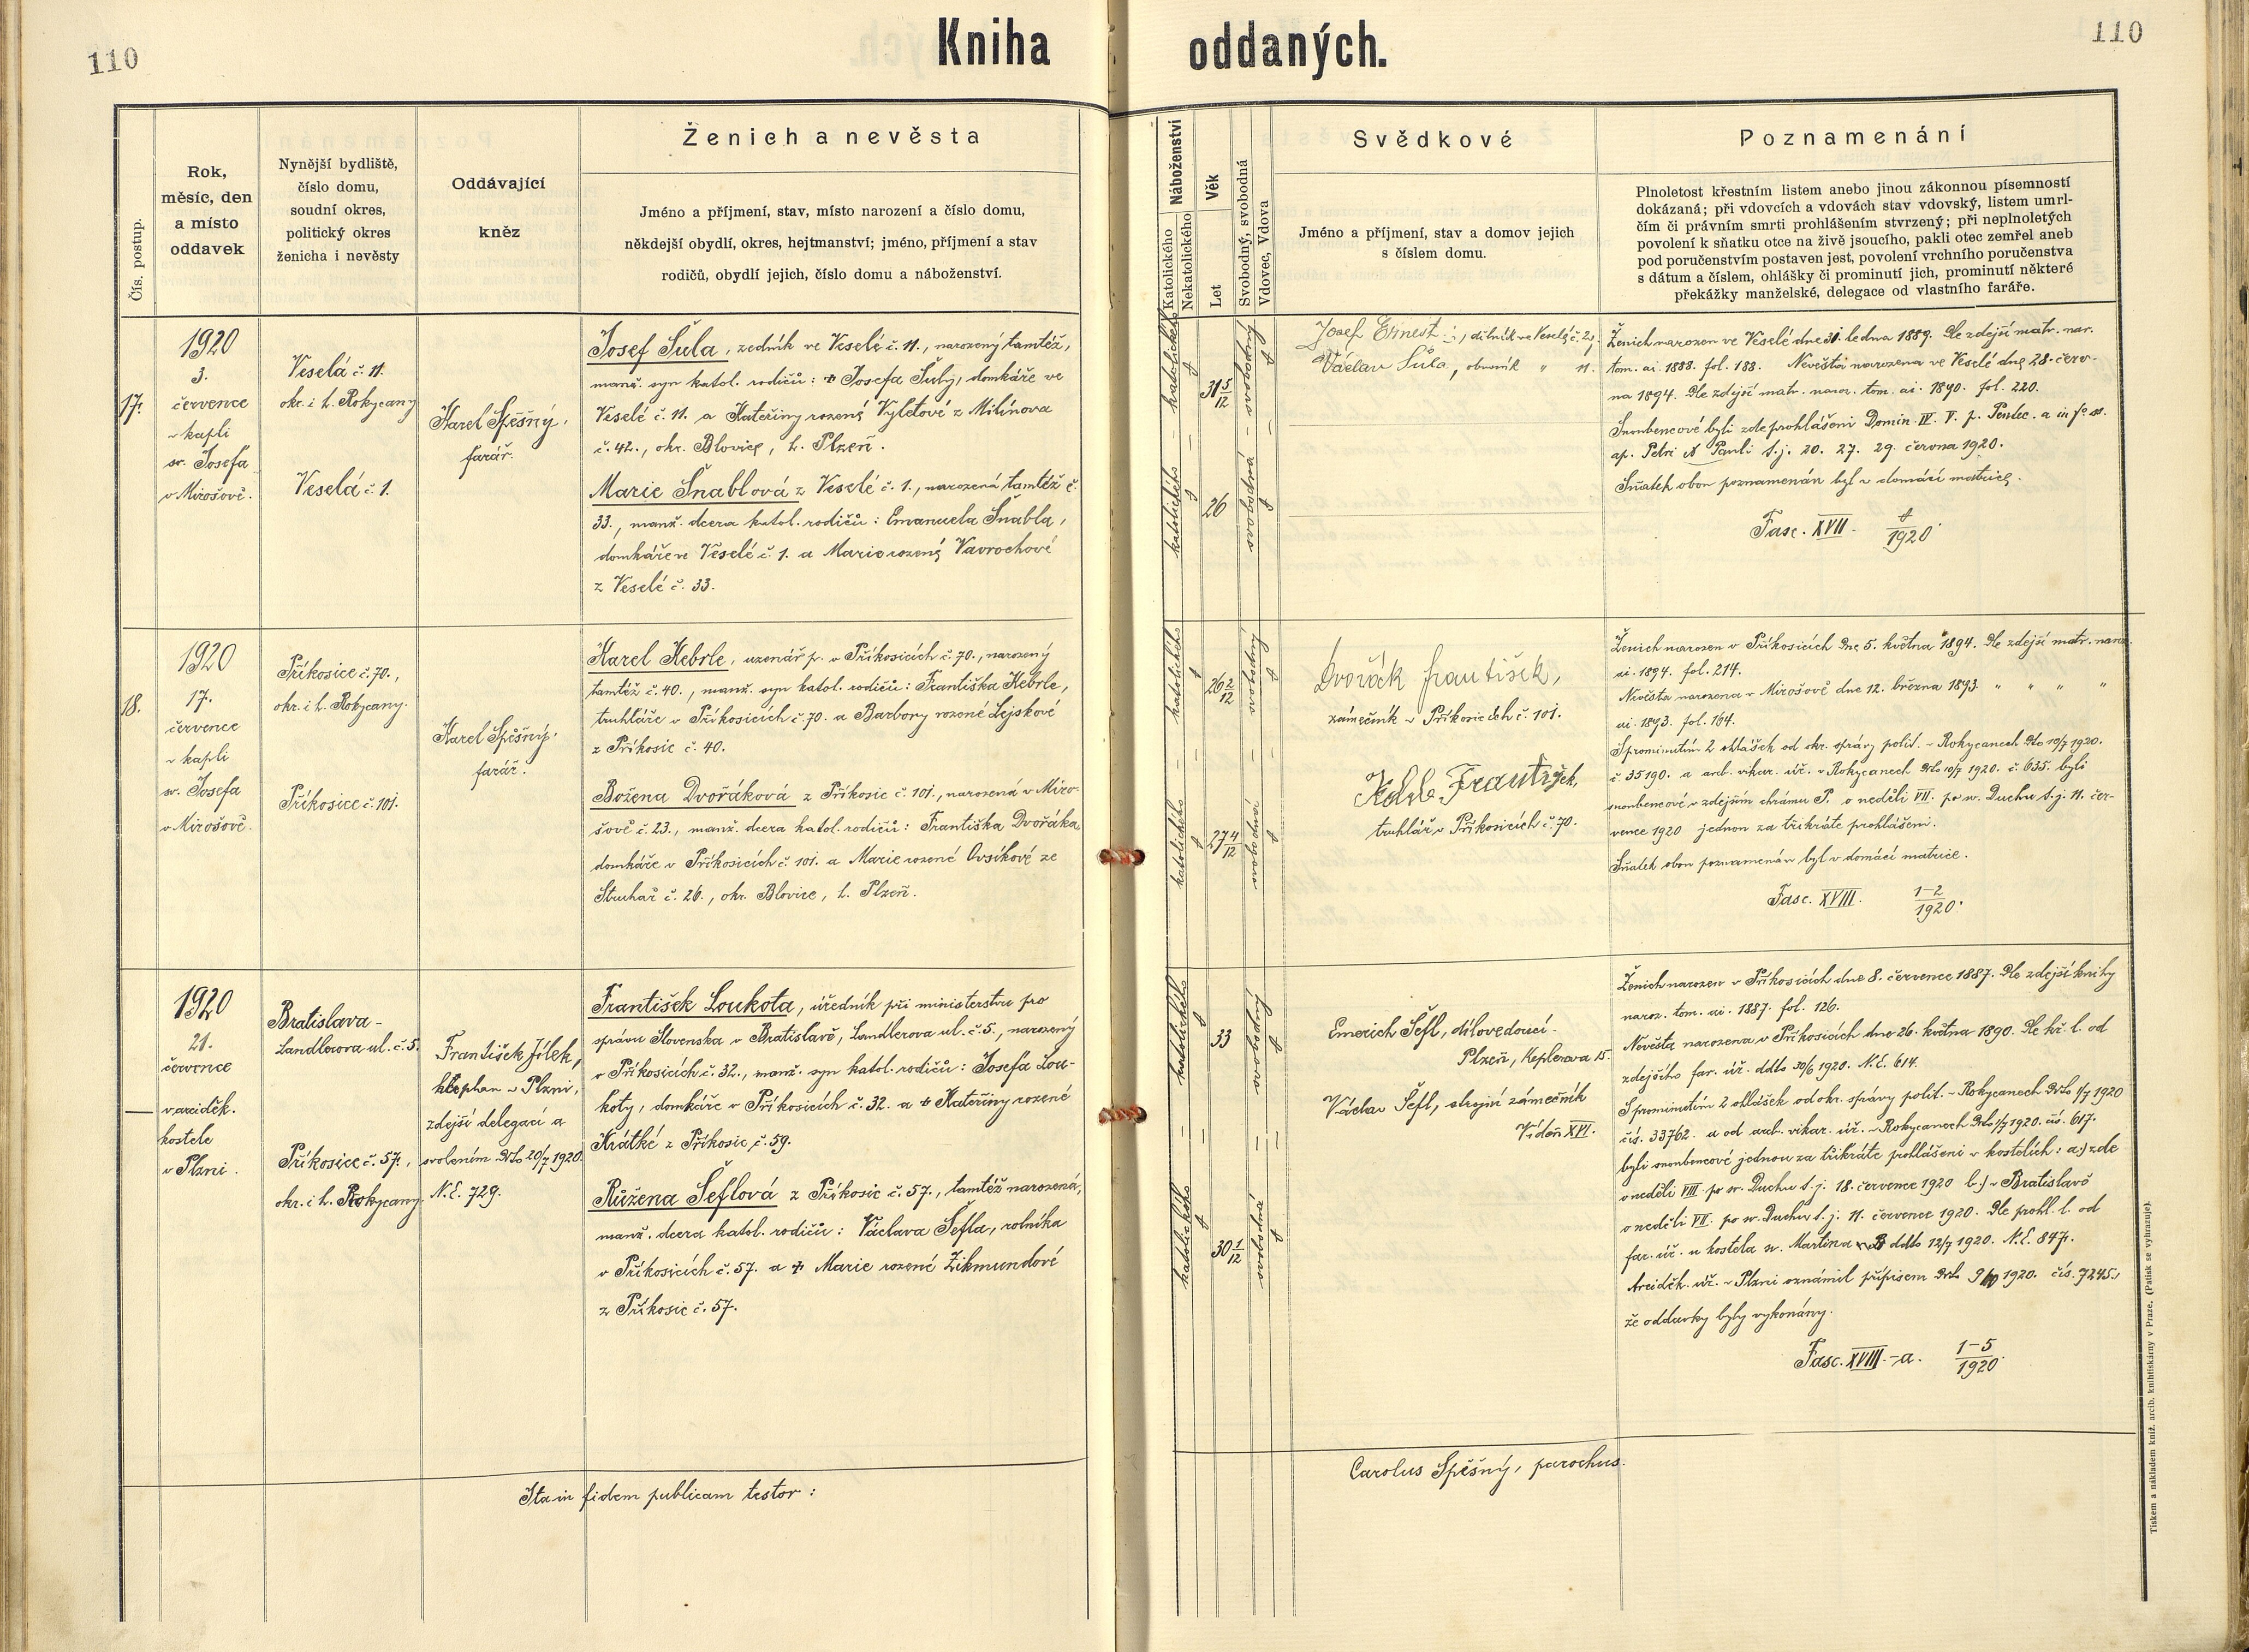 110
Kniha oddaných.
110
Čís. postup.
Rok,
měsíc, den
a místo
oddavek
Nynější bydliště,
číslo domu,
soudní okres,
politický okres
ženicha i nevěsty
Oddávající
kněz
Ženich a nevěsta
Jméno a příjmení, stav, místo narození a číslo domu,
někdejší obydlí, okres, hejtmanství; jméno, příjmení a stav
rodičů, obydlí jejich, číslo domu a náboženství.
Náboženství
Katolického
Nekatolického
Věk
Let
Svobodný, svobodná
Vdovec, Vdova
Svědkové
Jméno a příjmení, stav a domov jejich
s číslem domu.
Poznamenání
Plnoletost křestním listem anebo jinou zákonnou písemností
dokázaná; při vdovcích a vdovách stav vdovský, listem umrl-
čím či právním smrti prohlášením stvrzený; při neplnoletých
povolení k sňatku otce na živě jsoucího, pakli otec zemřel aneb
pod poručenstvím postaven jest, povolení vrchního poručenstva
s dátum a číslem, ohlášky či prominutí jich, prominutí některé
překážky manželské, delegace od vlastního faráře.
17.
1920
3.
července
v kapli
sv. Josefa
v Mirošově.
Veselá č. 11.
okr. i h. Rokycany
Veselá č. 1.
Karel Spěšný,
farář.
Josef Šula, zedník ve Veselé č. 11., narozený tamtéž,
manž. syn katol. rodičů: † Josefa Šuly, domkáře ve
Veselé č. 11. a Kateřiny rozené Vyletové z Milínova
č. 42., okr. Blovice, h. Plzeň.
Marie Šnablová z Veselé č. 1., narozená tamtéž č.
33., manž. dcera katol. rodičů: Emanuela Šnabla,
domkáře ve Veselé č. 1. a Marie rozené Vavrochové
z Veselé č. 33.
katolického
katolického
31 5/12
26
svobodný
svobodná
Josef Ernest, dělník ve Veselé č. 29.
Václav Šula, obuvník " 11.
Ženich narozen ve Veselé dne 31. ledna 1889. Dle zdejší matr. nar.
tom. ai. 1888. fol. 188. Nevěsta narozena ve Veselé dne 28. červ-
na 1894. Dle zdejší matr. naroz. tom. ai. 1890. fol. 220.
Snoubencové byli zde prohlášeni Domin. IV. V. p. Pentec. a in fo ss.
ap. Petri & Pauli t. j. 20. 27. 29. června 1920.
Sňatek obou poznamenán byl v domácí matrice.
Fasc. XVII. 1/1920.
18.
1920
17.
července
v kapli
sv. Josefa
v Mirošově.
Příkosice č. 70.,
okr. i h. Rokycany.
Příkosice č. 101.
Karel Spěšný,
farář.
Karel Kebrle, uzenář p. v Příkosicích č. 70., narozený
tamtéž č. 40., manž. syn katol. rodičů: Františka Kebrle,
truhláře v Příkosicích č. 70. a Barbory rozené Lejskové
z Příkosic č. 40.
Božena Dvořáková z Příkosic č. 101., narozená v Miro-
šově č. 23., manž. dcera katol. rodičů: Františka Dvořáka
domkáře v Příkosicích č. 101. a Marie rozené Ovsíkové ze
Struhař č. 26., okr. Blovice, h. Plzeň.
katolického
katolického
26 2/12
27 4/12
svobodný
svobodná
Dvořák František,
zámečník v Příkosicích č. 101.
Kebrle František,
truhlář v Příkosicích č. 70.
Ženich narozen v Příkosicích dne 5. května 1894. Dle zdejší matr. naroz.
ai. 1894. fol. 214.
Nevěsta narozena v Mirošově dne 12. března 1893. " " " "
ai. 1893. fol. 164.
S prominutím 2 ohlášek od okr. správy polit. v Rokycanech ddto 10/7 1920.
č. 35190. a arcib. vikar. úř. v Rokycanech ddto 10/7 1920. č. 635. byli
snoubencové v zdejším chrámu P. o neděli VII. po sv. Duchu t. j. 11. čer-
vence 1920 jednou za třikráte prohlášeni.
Sňatek obou poznamenán byl v domácí matrice.
Fasc. XVIII. 1-2/1920.
1920
21.
července
v arciděk.
kostele
v Plzni.
Bratislava -
Landlerova ul. č. 5.
Příkosice č. 57.,
okr. i h. Rokycany.
František Jílek,
kaplan v Plzni,
zdejší delegací a
svolením ddto 20/7 1920
N. E. 729.
František Loukota, úředník při ministerstvu pro
správu Slovenska v Bratislavě, Landlerova ul. č. 5., narozený
v Příkosicích č. 32., manž. syn katol. rodičů: Josefa Lou-
koty, domkáře v Příkosicích č. 32. a † Kateřiny rozené
Krátké z Příkosic č. 59.
Růžena Šeflová z Příkosic č. 57., tamtéž narozená,
manž. dcera katol. rodičů: Václava Šefla, rolníka
v Příkosicích č. 57. a † Marie rozené Zikmundové
z Příkosic č. 57.
katolického
katolického
33
30 1/12
svobodný
svobodná
Emerich Šefl, dílovedoucí.
Plzeň, Keplerova 15.
Václav Šefl, strojní zámečník
Vídeň XVI.
Ženich narozen v Příkosicích dne 8. července 1887. Dle zdejší knihy
naroz. tom. ai. 1887. fol. 126.
Nevěsta narozena v Příkosicích dne 26. května 1890. Dle kř. l. od
zdejšího far. úř. ddto 30/6 1920. N. E. 614.
S prominutím 2 ohlášek od okr. správy polit. v Rokycanech ddto 1/7 1920
čís. 33762. a od arcib. vikar. úř. v Rokycanech ddto 1/7 1920. čís. 617.
byli snoubencové jednou za třikráte prohlášeni v kostelích: a.) zde
o neděli VIII. po sv. Duchu t. j. 18. července 1920 b.) v Bratislavě
o neděli VII. po sv. Duchu t. j. 11. července 1920. Dle prohl. l. od
far. úř. u kostela sv. Martina v B ddto 12/7 1920. N. E. 847.
Arciděk. úř. v Plzni oznámil přípisem ddto 1920. čís. 7245.,
že oddavky byly vykonány.
Fasc. XVIII.-a. 1-5/1920.
Ita in fidem publicam testor:
Carolus Spěšný, parochus.
Tiskem a nákladem kníž. arcib. knihtiskárny v Praze. (Patisk se vyhrazuje).